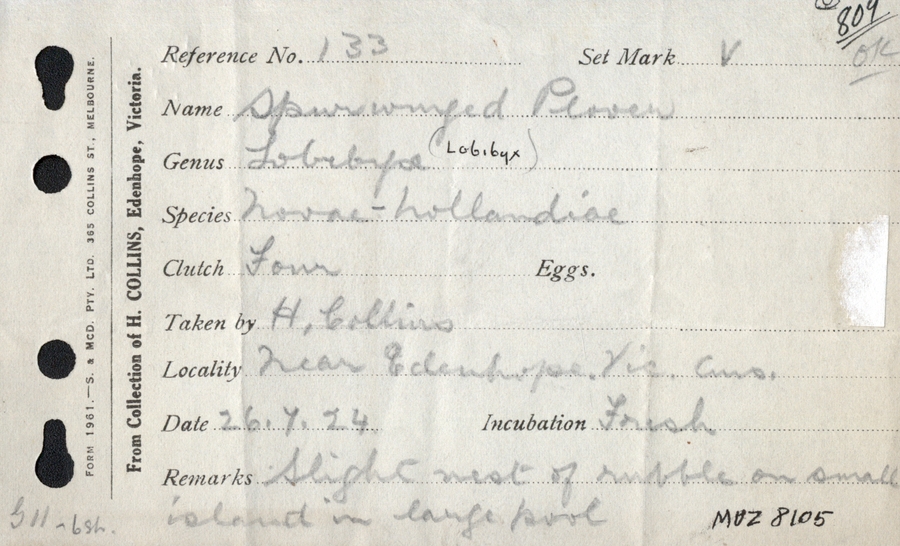 809
OK
Reference No. 133 Set Mark V
Name Spurwinged Plover
Genus Lobibyx (Lobibyx)
Species Novae-hollandiae
Clutch Four Eggs.
Taken by H. Collins
Locality Near Edenhope. Vic. Aus.
Date 26.7.24. Incubation Fresh
Remarks Slight nest of rubble on small
island in large pool
MVZ 8105
From Collection of H. COLLINS, Edenhope, Victoria.
FORM 1961.—S. & MCD. PTY. LTD. 365 COLLINS ST., MELBOURNE.